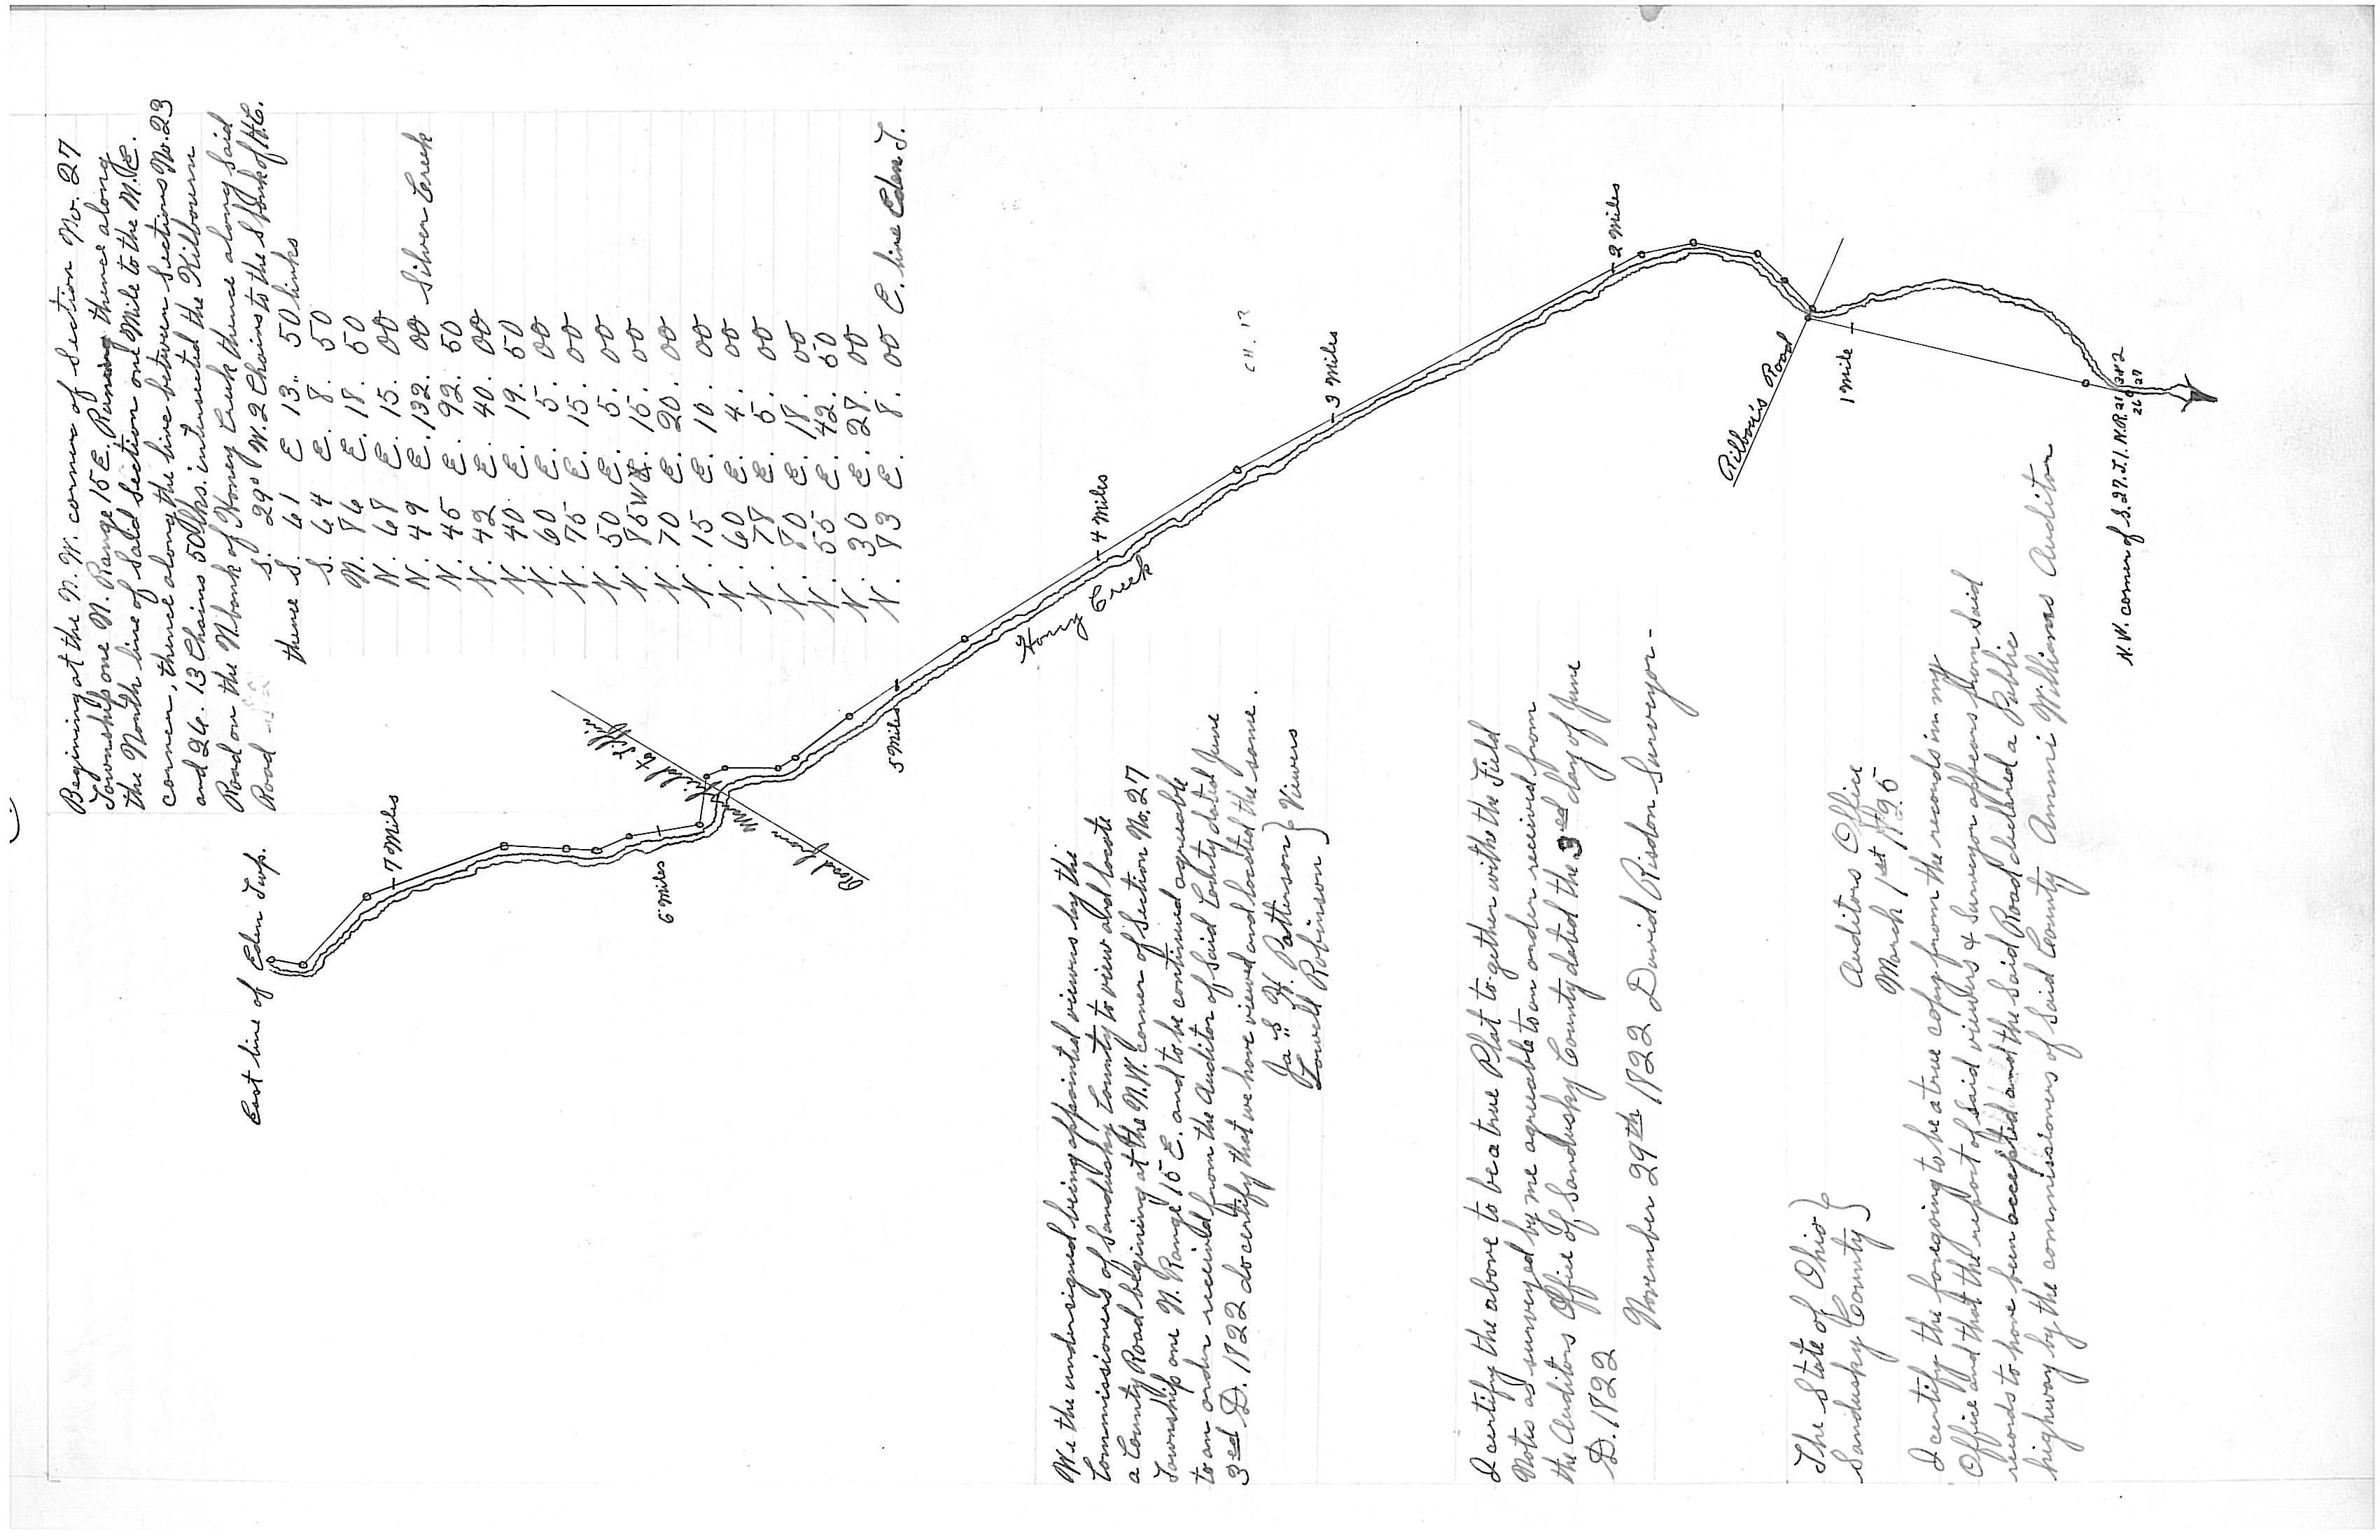 Beginning at the N. W. corner of Section No. 27
Township one N. Range 15 E. Running thence along
the North line of said Section one Mile to the N. E.
corner, thence along the line between Sections No. 23
and 26. 13 Chains 50 lks. intersected the Kilbourn
Road on the N. bank of Honey Creek thence along said
Road S. 29° W. 2 Chains to the S. bank of H.C.
thence S. 61 E 13. 50 links
S. 64 E. 8. 50
N. 86 E. 18. 50
N. 68 E. 15. 00
N. 49 E. 132. 00 Silver Creek
N. 45 E. 92. 50
N. 42 E. 40. 00
N. 40 E. 19. 50
N. 60 E. 5. 00
N. 75 E. 15. 00
N. 50 E. 5. 00
N. 85 W. 15. 00
N. 70 E. 20. 00
N. 15 E. 10 00
N. 60 E. 4. 00
N. 78 E. 5. 00
N. 80 E. 18. 00
N. 55 E. 42. 50
N. 30 E. 28. 00
N. 83 E. 8. 00 E. line Eden T.
East line of Eden Twp.
7 Miles
6 Miles
Road from to Tiffin
5 Miles
Honey Creek
4 Miles
3 Miles
2 Miles
Kilborn's Road
1 Mile
N. W. corner of S. 27. T. 1. N. R.
We the undersigned being appointed viewers by the
Commissioners of Sandusky County to view and locate
a County Road begining at the N.W. corner of Section No. 27
Township one N. Range 15 E. and to be continued agreeable
to an order received from the Auditor of said County dated June
3ed D. 1822 do certify that we have viewed and located the same.
Ja"s H. Patterson
Lowell Robinson } Viewers
I certify the above to be a true Plat to-gether with the Field
Notes as surveyed by me agreeable to an order received from
the Auditors Office of Sandusky County dated the 3ed day of June
D. 1822
November 29th 1822 David Risdon Surveyor-
The State of Ohio }
Sandusky County }
Auditors Office
March 1st 1825
I certify the foregoing to be a true copy from the records in my
Office and that the report of said viewers & Surveyor appears from said
records to have been accepted and the said Road declared a Public
highway by the commissioners of said County Ammi Williams Auditor